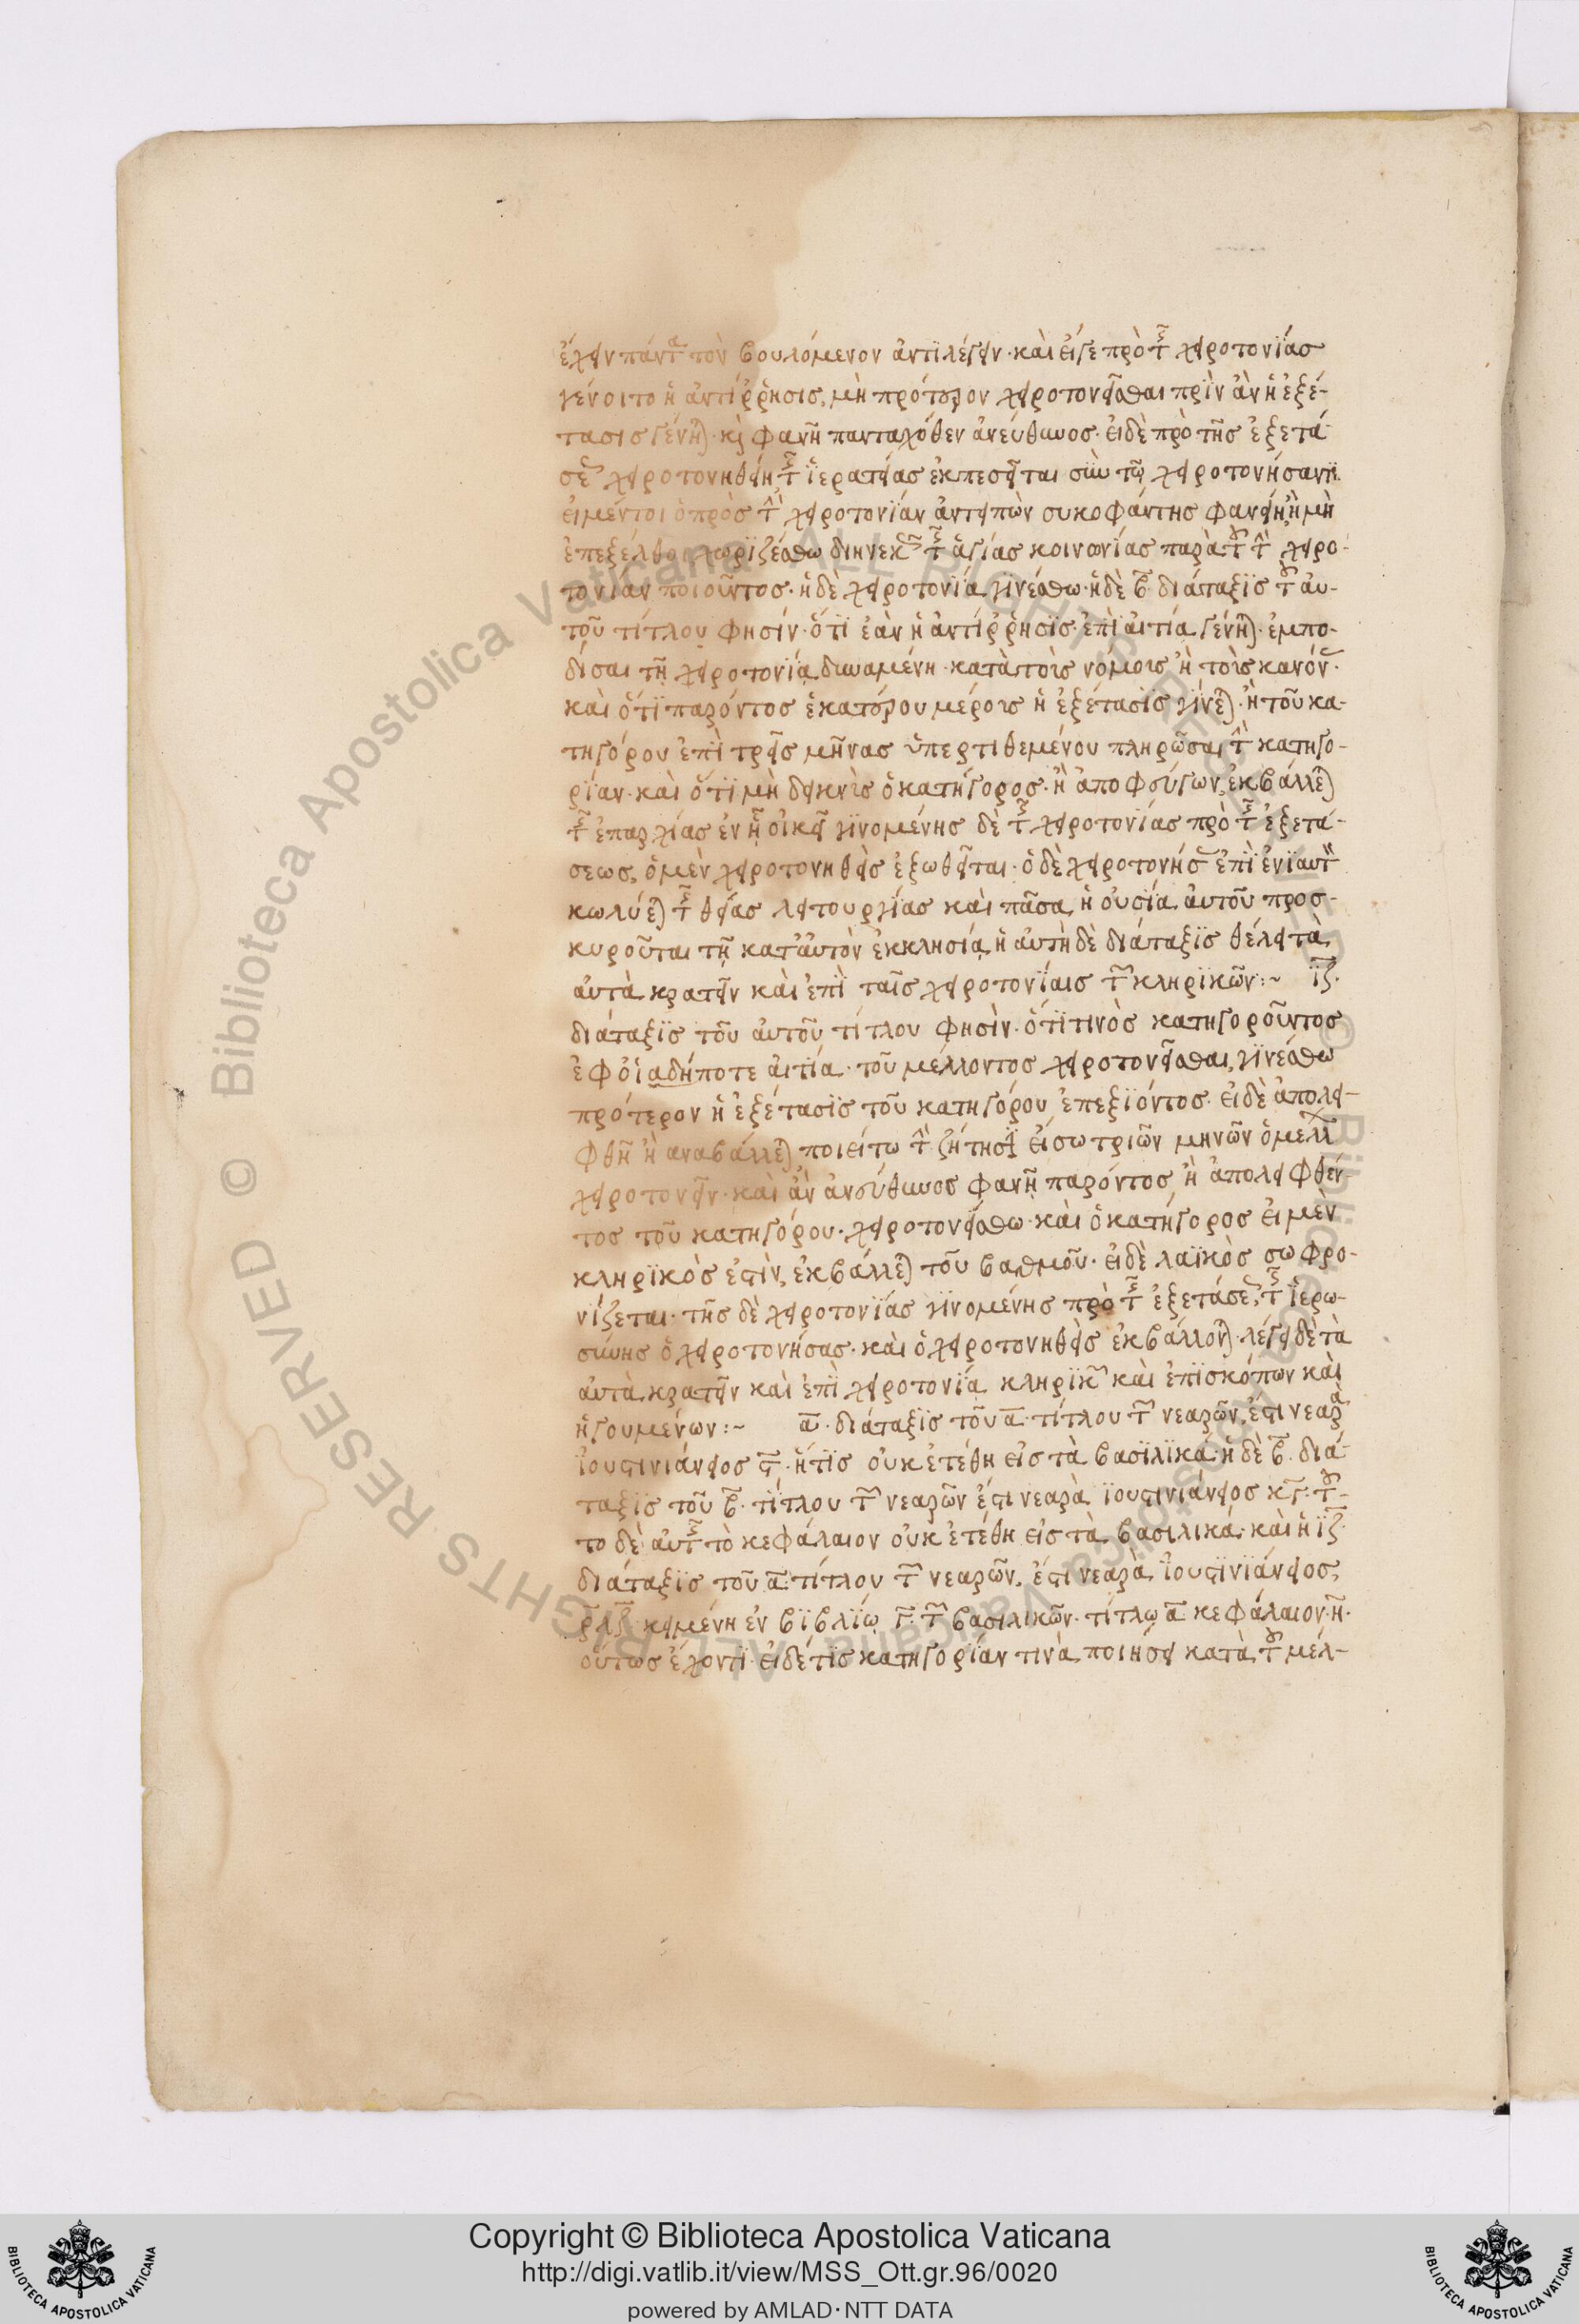 ἔχειν πάντα τὸν βουλόμενον ἀντιλέγειν· καὶ εἴγε πρὸ τῆς χειροτονίας
γένοιτο ἡ ἀντίρρησις, μὴ πρότερον χειροτονεῖσθαι πρὶν ἂν ἡ ἐξέ-
τασις γένηται· καὶ φανῆ πανταχόθεν ἀνεύθυνος· εἰ δὲ πρὸ τῆς ἐξετά-
σεως χειροτονηθείη τῆς ἱερατείας ἐκπεσεῖται σὺν τῷ χειροτονήσαντι.
εἰ μέντοι ὁ πρὸς τὴν χειροτονίαν ἀντειπὼν συκοφάντης φανείη, ἢ μὴ
ἐπεξέλθοι χωριζέσθω διηνεκῶς τῆς ἁγίας κοινωνίας παρὰ τοῦ τὴν χειρο-
τονίαν ποιοῦντος· ἡ δὲ χειροτονία γινέσθω· ἡ δὲ β διάταξις τοῦ αὐ-
τοῦ τίτλου φησίν· ὅτι ἐὰν ἡ ἀντίρρησις ἐπὶ αἰτία γένηται ἐμπο-
δίσαι τῇ χειροτονία δυναμένη κατὰ τοὺς νόμους ἢ τοὺς κανόνας·
καὶ ὅτι παρόντος ἑκατέρου μέρους ἡ ἐξέτασις γίνεται· ἢ τοῦ κα-
τηγόρου ἐπὶ τρεῖς μῆνας ὑπερτιθεμένου πληρῶσαι τὴν κατηγο-
ρίαν· καὶ ὅτι μὴ δεικνὺς ὁ κατήγορος· ἢ ἀποφεύγων, ἐκβάλλεται
τῆς ἐπαρχίας ἐν ἧ οἰκεῖ γινομένης δὲ τῆς χειροτονίας πρὸ τῆς ἐξετά-
σεως, ὁ μὲν χειροτονηθεὶς ἐξωθεῖται· ὁ δὲ χειροτονήσας ἐπὶ ἐνιαυτὸν
κωλύεται τῆς θείας λειτουργίας καὶ πᾶσα ἡ οὐσία αὐτοῦ προσ-
κυροῦται τῇ κατ' αὐτὸν ἐκκλησία, ἡ αὐτὴ δὲ διάταξις θέλει τὰ
αὐτὰ κρατεῖν καὶ ἐπὶ ταῖς χειροτονίαις τῶν κληρικῶν:~ ιζ.
διάταξις τοῦ αὐτοῦ τίτλου φησὶν· ὅτι τινὸς κατηγοροῦντος
ἐφ' οἱαδήποτε αἰτία τοῦ μέλλοντος χειροτονεῖσθαι, γινέσθω
πρότερον ἡ ἐξέτασις τοῦ κατηγόρου ἐπεξιόντος· εἰ δὲ ἀπολει-
φθῆ ἢ ἀναβάλλεται ποιείτω τὴν ζήτησιν εἴσω τριῶν μηνῶν ὁ μέλλων
χειροτονεῖν· καὶ ἂν ἀνεύθυνος φανῆ παρόντος ἢ ἀπολειφθέν-
τος τοῦ κατηγόρου· χειροτονείσθω· καὶ ὁ κατήγορος εἰ μὲν
κληρικὸς ἐστὶν, ἐκβάλλεται τοῦ βαθμοῦ· εἰ δὲ λαϊκὸς σωφρο-
νίζεται· τῆς δὲ χειροτονίας γινομένης πρὸ τῆς ἐξετάσεως, τῆς ἱερω-
σύνης ὁ χειροτονήσας· καὶ ὁ χειροτονηθεὶς ἐκβάλλονται· λέγει δὲ τὰ
αὐτὰ κρατεῖν καὶ ἐπὶ χειροτονία κληρικῶν καὶ ἐπισκόπων καὶ
ἡγουμένων:~ α. διάταξις τοῦ α. τίτλου τῶν νεαρῶν, ἐστι νεαρὰ
ἰουστινιάνειος ϛ· ἥτις οὐκ ἐτέθη εἰς τὰ βασιλικά· ἡ δὲ β. διά-
ταξις τοῦ β. τίτλου τῶν νεαρῶν ἐστι νεαρὰ ἰουστινιάνειος κγ. τοῦ-
το δὲ αὐτῆς τὸ κεφάλαιον οὐκ ἐτέθη εἰς τὰ βασιλικά· καὶ ἡ ιζ.
διάταξις τοῦ α. τίτλου τῶν νεαρῶν, ἐστι νεαρὰ ἰουστινιάνειος,
ρλζ κειμένη ἐν βιβλίω γ. τῶν βασιλικῶν· τίτλω α κεφάλαιον η.
οὕτως ἔχοντι· εἰ δέ τις κατηγορίαν τινὰ ποιήσει κατὰ τοῦ μέλ-
© Biblioteca Apostolica Vaticana ALL RIGHTS RESERVED
Copyright © Biblioteca Apostolica Vaticana
http://digi.vatlib.it/view/MSS_Ott.gr.96/0020
powered by AMLAD·NTT DATA
BIBLIOTECA APOSTOLICA VATICANA
BIBLIOTECA APOSTOLICA VATICANA